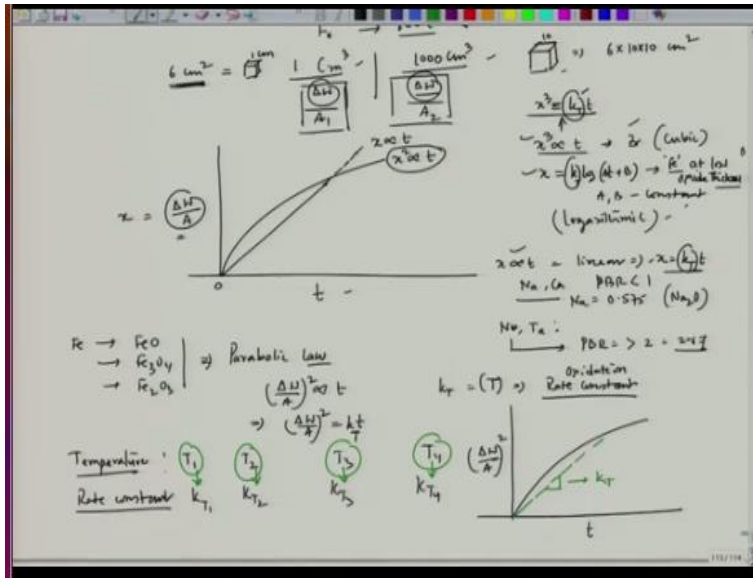 6 cm² = 1 cm
1 Cm³ - 1000 Cm³ -
10
=> 6×10×10 cm²
ΔW
A₁
ΔW
A₂
x³ = k t
x³ ∝ t → Zr (Cubic)
x = k log (At + B) → 'Fe' at low oxide thickness
A, B - constant
(Logarithmic) -
x ∝ t
x² ∝ t
x = ΔW/A
0
t -
x ∝ t - linear => x = k t
Na, Ca PBR < 1
Na = 0.575 (Na₂O)
Nb, Ta :
PBR = > 2 =
Fe → FeO
→ Fe₃O₄
→ Fe₂O₃
=> Parabolic Law
(ΔW/A)² ∝ t
=> (ΔW/A)² = k_T t
k_T = (T) => Oxidation Rate Constant
Temperature : T₁ T₂ T₃ T₄
Rate constant k_T₁ k_T₂ k_T₃ k_T₄
(ΔW/A)²
→ k_T
t
113/114